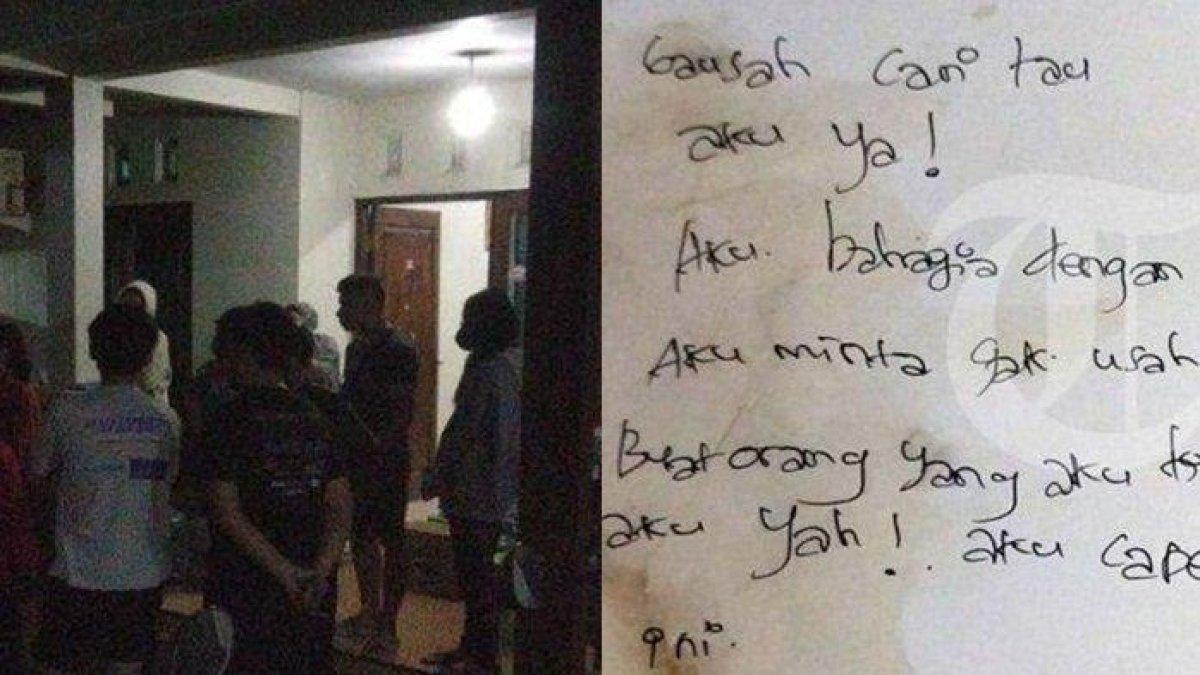 Gausah cari tau
aku ya!
Aku bahagia dengan
Aku minta gak usah
Buat orang yang aku
aku yah! aku cape
ini.